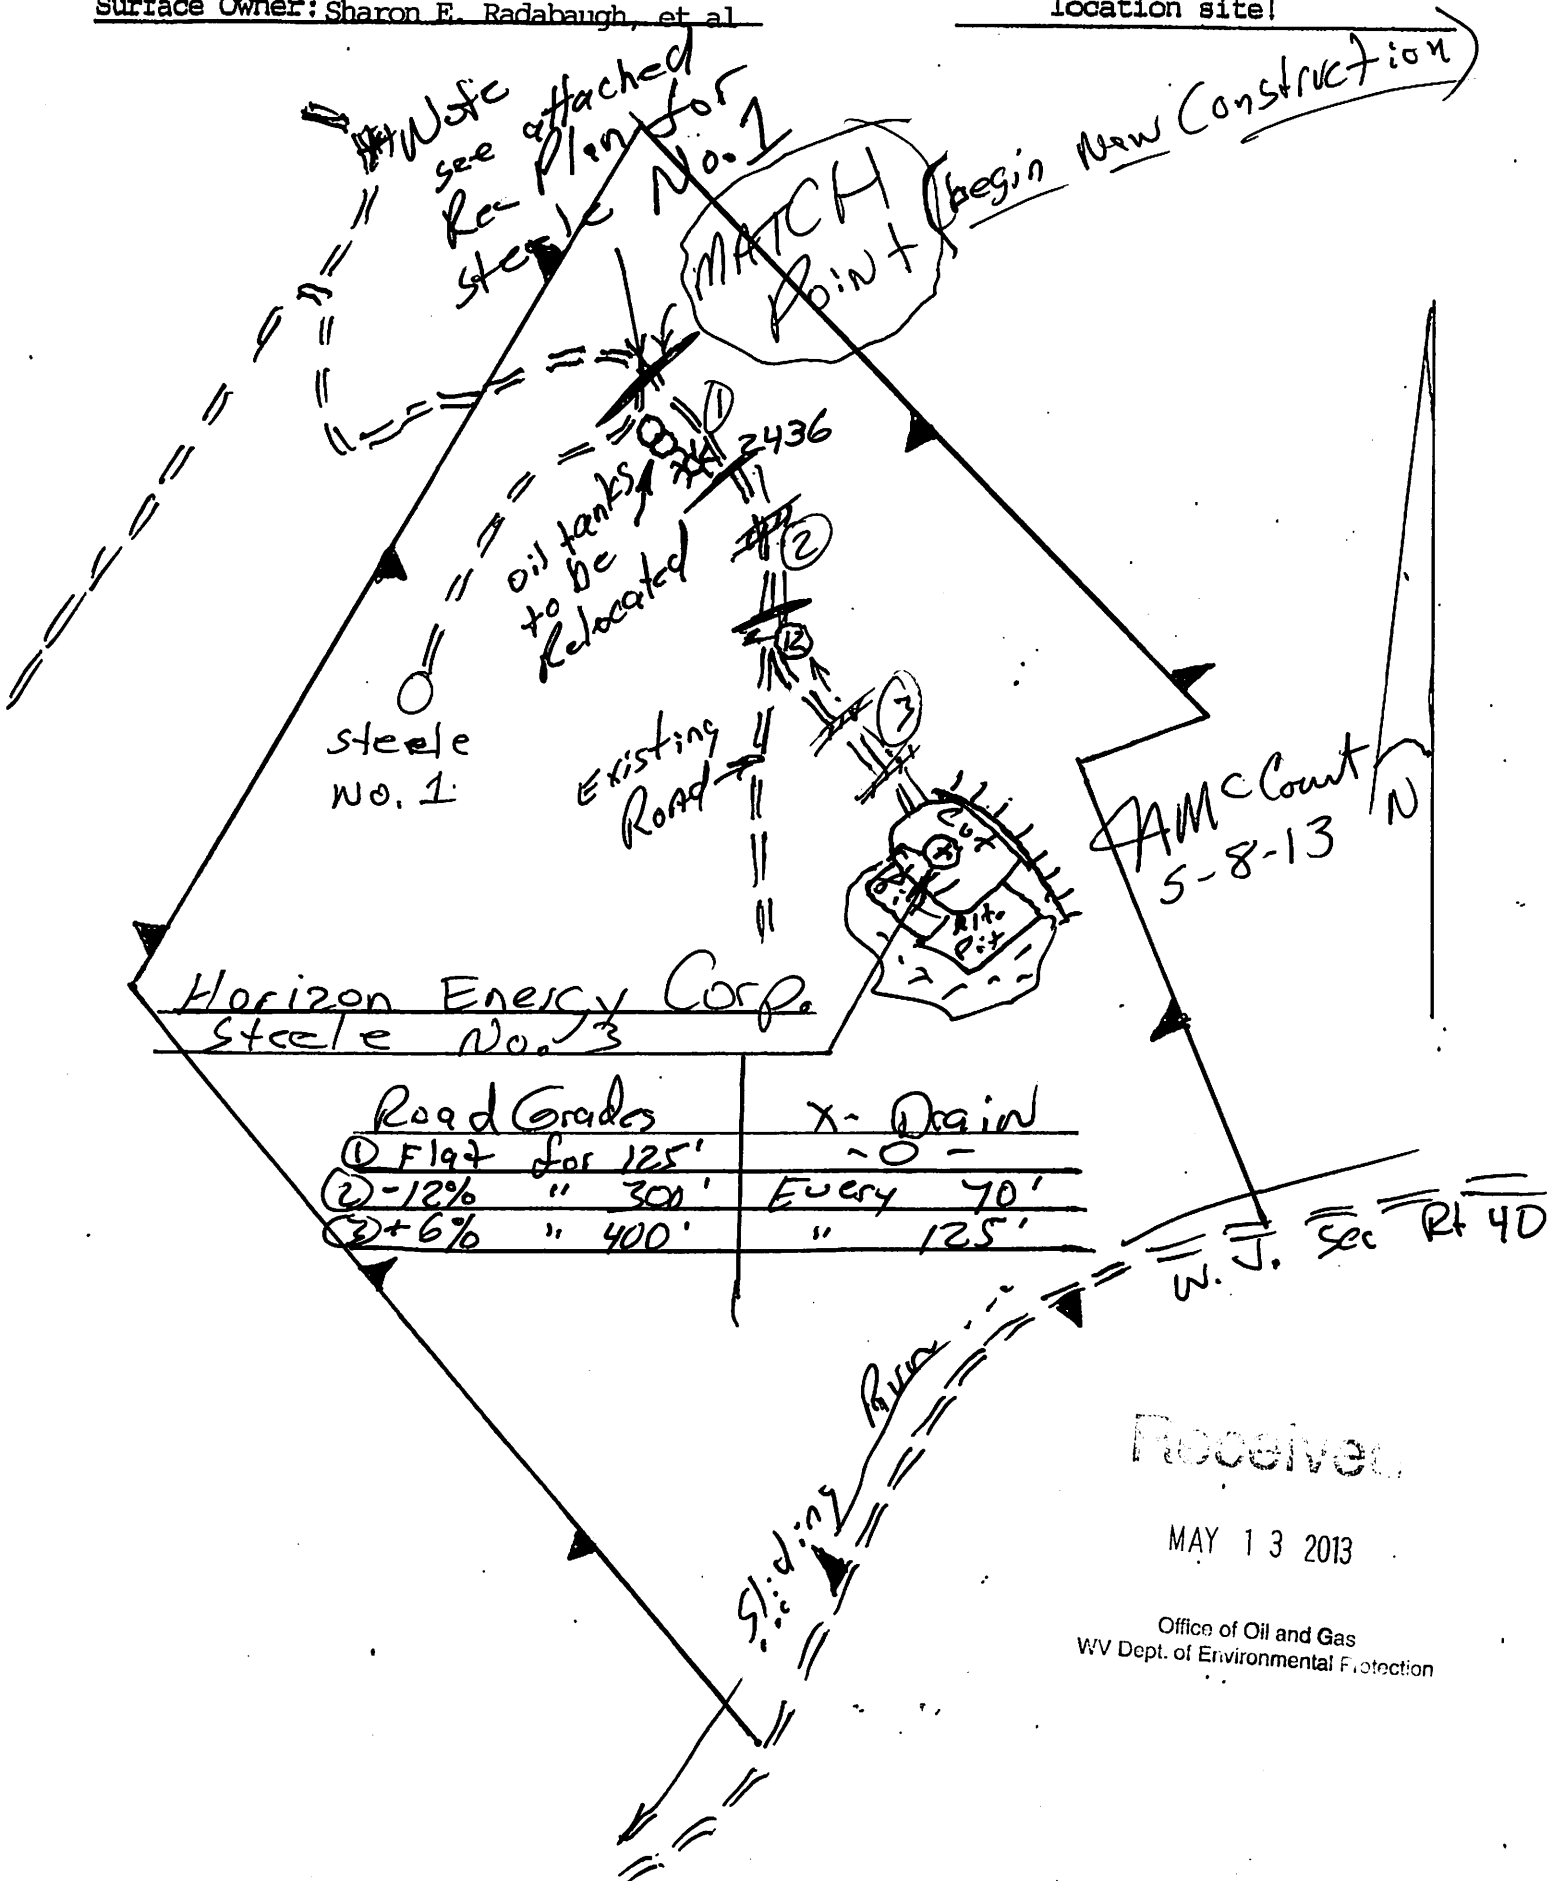 Surface Owner: Sharon E. Radabaugh, et al
location site!
Note
see attached
Rec Plan for
Steele No. 1
MATCH
Point
(begin New Construction)
1
2436
2
oil tanks
to be
Relocated
12
3
Steele
No. 1
Existing
Road
Cut
Alt.
Pit
JAMcCourt
5-8-13
N
Horizon Energy Corp.
Steele No. 3
Road Grades X- Drain
① Flat for 125' -0-
② -12% " 300' Every 70'
③ +6% " 400' " 125'
W. J. Sec Rt 40
Sliding Run
Received
MAY 13 2013
Office of Oil and Gas
WV Dept. of Environmental Protection